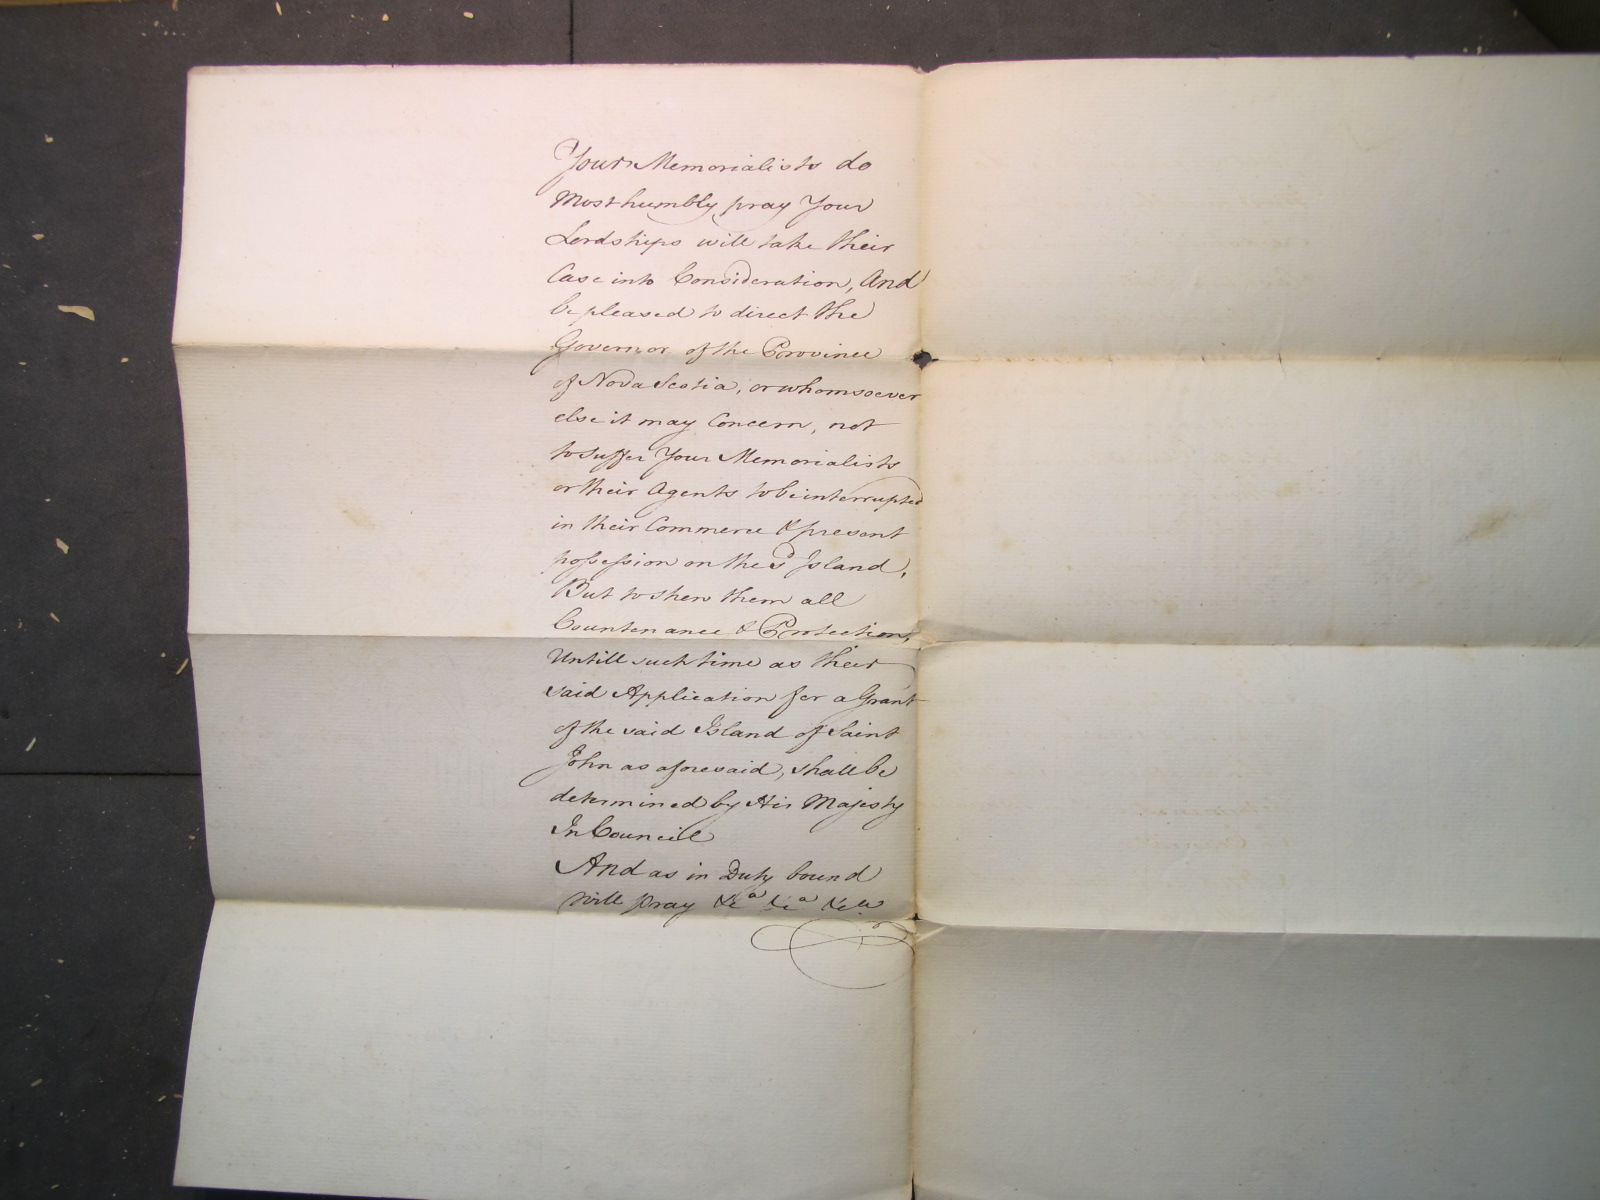 Your Memorialists do
Most humbly pray Your
Lordships will take their
Case into Consideration, And
be pleased to direct the
Governor of the Province
of Nova Scotia, or whomsoever
else it may Concern, not
to suffer Your Memorialists
or their Agents to be interrupted
in their Commerce & present
possession on the sd Island,
But to shew them all
Countenance & Protection,
Untill such time as their
said Application for a Grant
of the said Island of Saint
John as aforesaid, shall be
determined by His Majesty
In Council
And as in Duty bound
will pray &ca &ca &ca